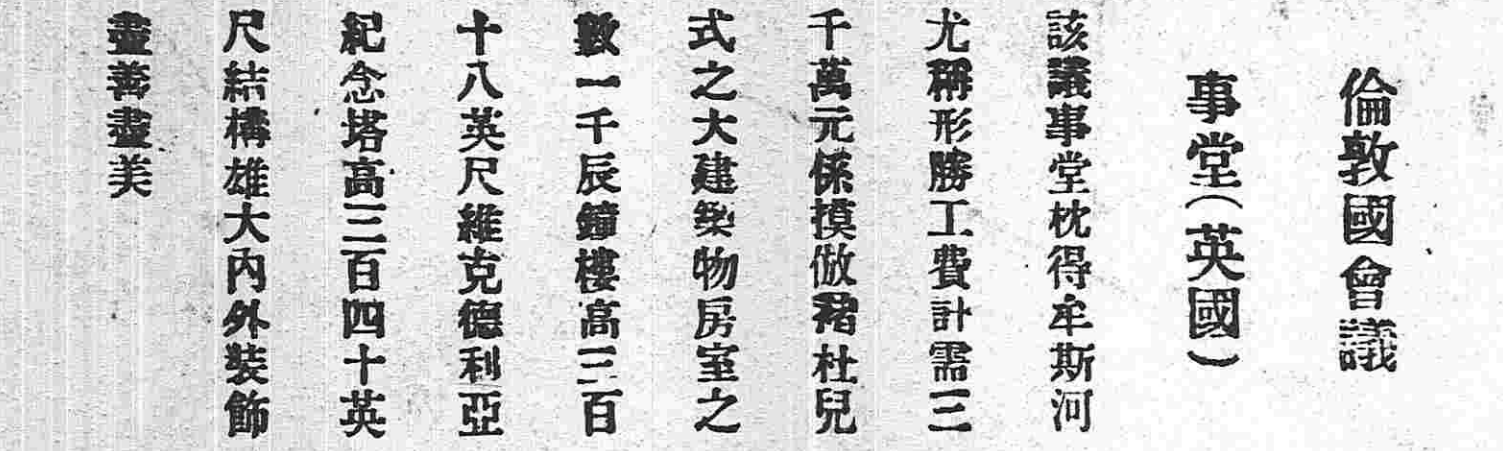 倫敦國會議
事堂(英國)
該議事堂枕得牟斯河
尤稱形勝工費計需三
千萬元係摸倣褚杜兒
式之大建築物房室之
數一千辰鐘樓高三百
十八英尺維克德利亞
紀念塔高三百四十英
尺結構雄大內外裝飾
盡善盡美